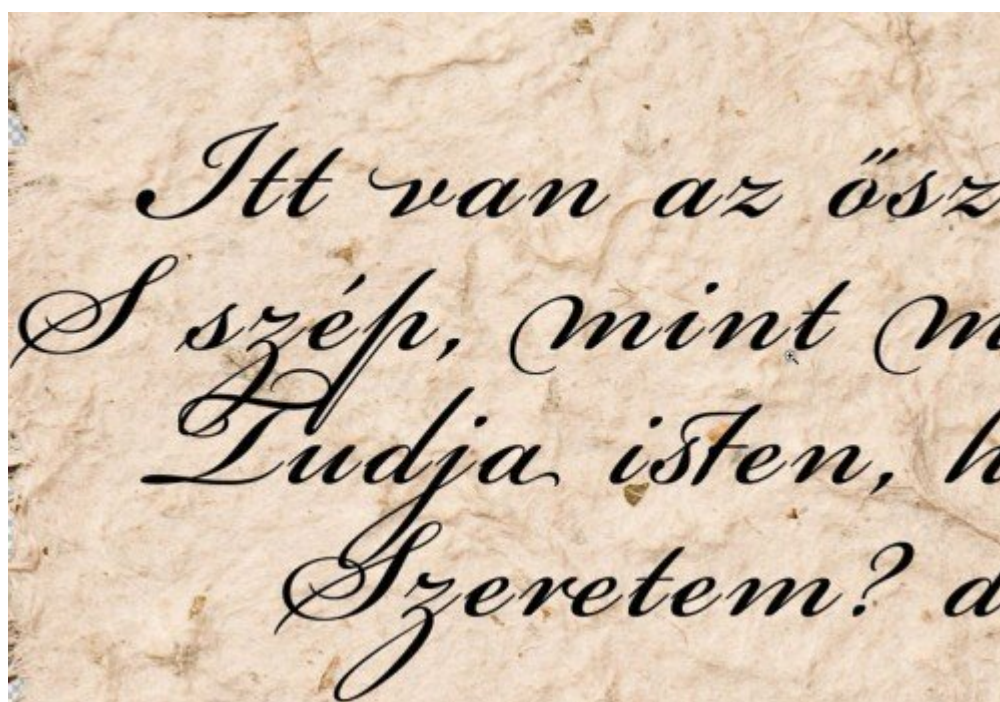 Itt van az ősz
S szép, mint m
Tudja isten, h
Szeretem? d